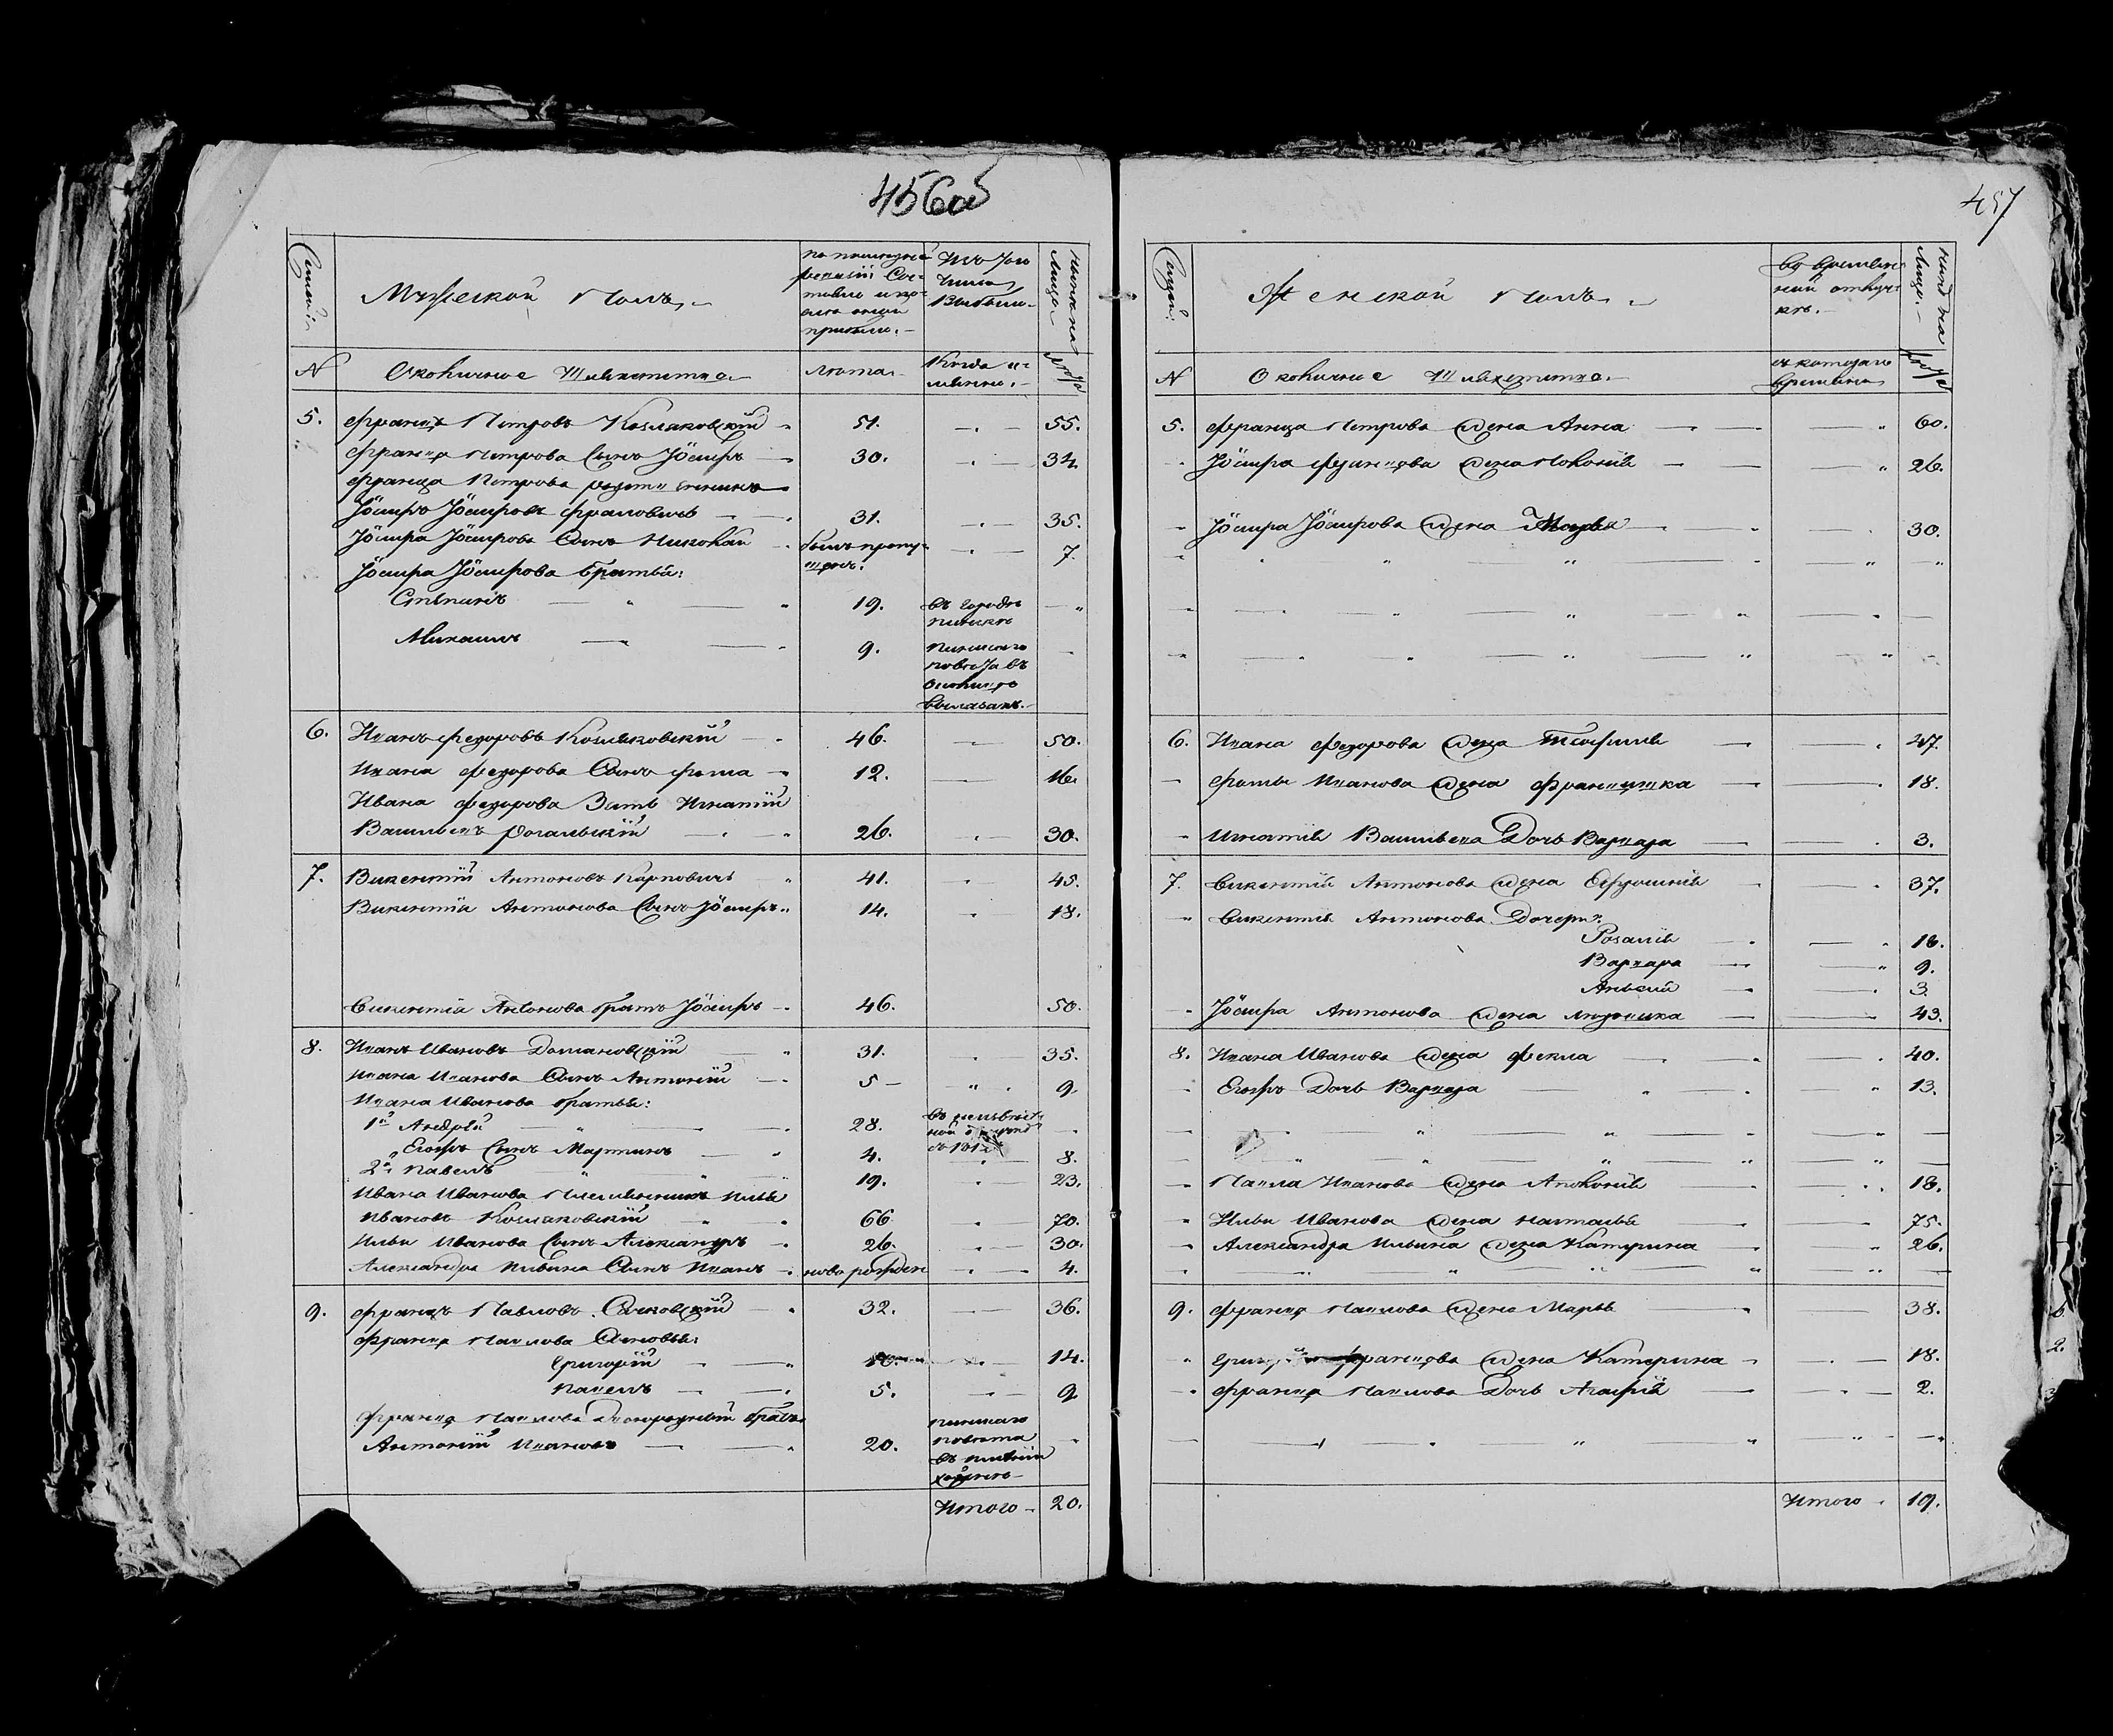 456об
Семьи.
Мужеской полъ,
по последней
ревизіи Со-
стояло и по-
сле оной
прибыло.
Изъ того
числа
Выбыло
Ныне на
лицо
N
Околичное Шляхетство
лета
Когда и-
менно.
лета
5. Францъ Петровъ Козляковскій 51. 55.
Франца Петрова Сынъ Іосифъ 30. 34
Франца Петрова родственникъ
Іосифъ Іосифовъ 31. 35.
Іосифа Іосифова Сынъ Николай былъ пропу-
щенъ. 7.
Іосифа Іосифова братья:
Степанъ 19. въ городе
Пинске
Михаилъ 9. Пинскаго
повета въ
6. Иванъ Федоровъ Козляковскій 46. 50.
Ивана Федорова Сынъ Фома 12. 16.
Ивана Федорова Зять Игнатій
Васильевъ Рогальскій 26. 30.
7. Викентій Антоновъ Карповичь 41. 45.
Викентія Антонова Сынъ Іосифъ 14. 18.
Викентія Антонова братъ Іосифъ 46. 50.
8. Иванъ Ивановъ Домановскій 31. 35.
Ивана Иванова Сынъ Антоній 5 9.
Ивана Иванова братья:
1й Андрей 28.
Егожъ Сынъ Мартинъ 4. 8.
2й Павелъ 19. 23.
Ивана Иванова Племянникъ Илья
Ивановъ Козляковскій 66 70.
Ильи Иванова Сынъ Александръ 26. 30.
Александра Ильина Сынъ Иванъ ново рожден 4.
9. Францъ Павловъ 32. 36.
Франца Павлова Сыновья:
Григорій 10. 14.
Павелъ 5. 9
Франца Павлова Двоюродный братъ
Антоній Ивановъ 20. Пинскаго
повета
въ имѣніи
Итого 20.
457
Семьи.
Женской полъ
Во времен-
ной отлуч-
ке.
Ныне на
лицо.
N
Околичное Шляхетство.
съ котораго
времени
лета
5. Франца Петрова жена Анна 60.
Іосифа Францова жена Полонія 26.
Іосифа Іосифова жена Марья 30.
6. Ивана Федорова жена Теофилія 47.
Фомы Иванова жена Францишка 18.
Игнатія Васильева Дочь Варвара 3.
7. Викентія Антонова жена Ефросинія 37.
Викентія Антонова Дочери:
Розалія 16.
Варвара 9.
3.
Іосифа Антонова жена Людвика 43.
8. Ивана Иванова жена Фекла 40.
Егожъ Дочь Варвара 13.
Павла Иванова жена Аполонія 18.
Ильи Иванова жена Наталья 75.
Александра Ильина жена Катерина 26.
9. Франца Павлова жена Марья 38.
Францова жена Катерина 18.
Франца Павлова Дочь Агафія 2.
Итого 19.